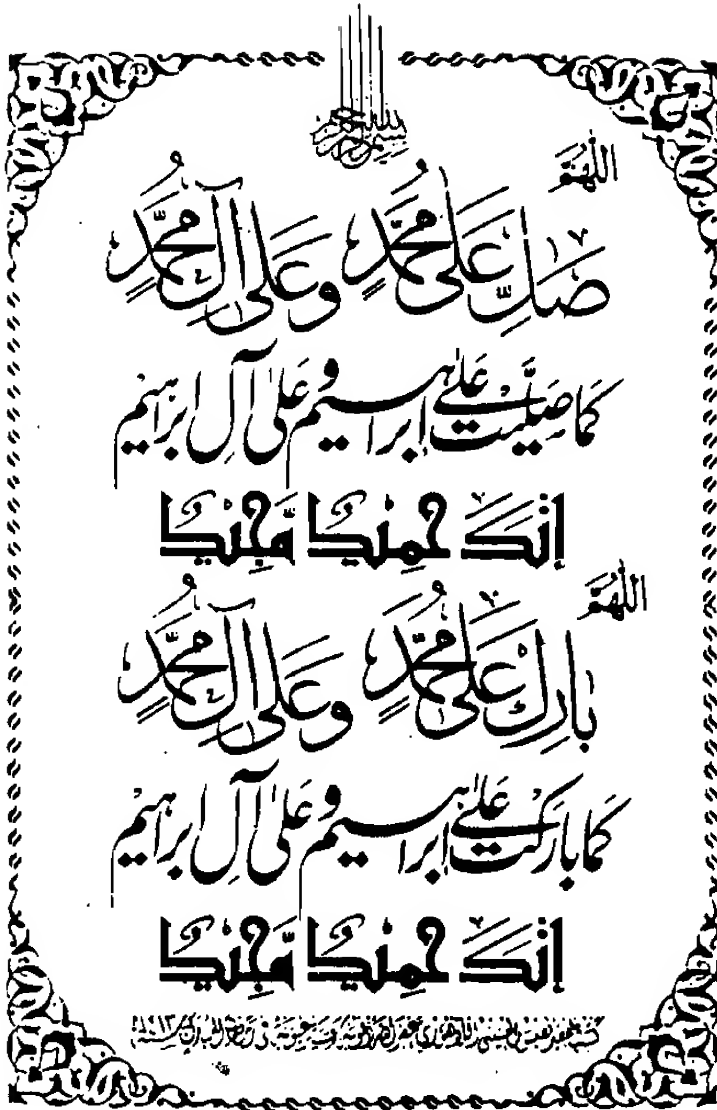 بسم الله الرحمن الرحيم
اللّٰهُمَّ
صَلِّ عَلٰى مُحَمَّدٍ وَّعَلٰى آلِ مُحَمَّدٍ
كَمَا صَلَّيْتَ عَلٰى إِبْرَاهِيْمَ وَعَلٰى آلِ إِبْرَاهِيْمَ
إِنَّكَ حَمِيْدٌ مَّجِيْدٌ
اللّٰهُمَّ
بَارِكْ عَلٰى مُحَمَّدٍ وَّعَلٰى آلِ مُحَمَّدٍ
كَمَا بَارَكْتَ عَلٰى إِبْرَاهِيْمَ وَعَلٰى آلِ إِبْرَاهِيْمَ
إِنَّكَ حَمِيْدٌ مَّجِيْدٌ
نفيس الحسيني